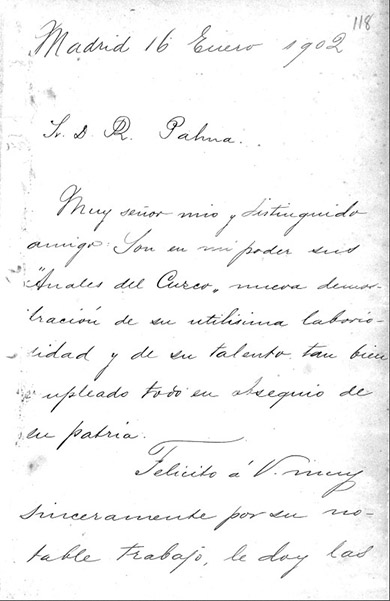 118
Madrid 16 Enero 1902
Sr. D. R. Palma.
Muy señor mio y distinguido
amigo: Son en mi poder sus
"Anales del Cuzco", nueva demos-
tración de su utilisima laborio-
sidad y de su talento tan bien
empleado todo en obsequio de
su patria.
Felicito á V. muy
sinceramente por su no-
table trabajo, le doy las